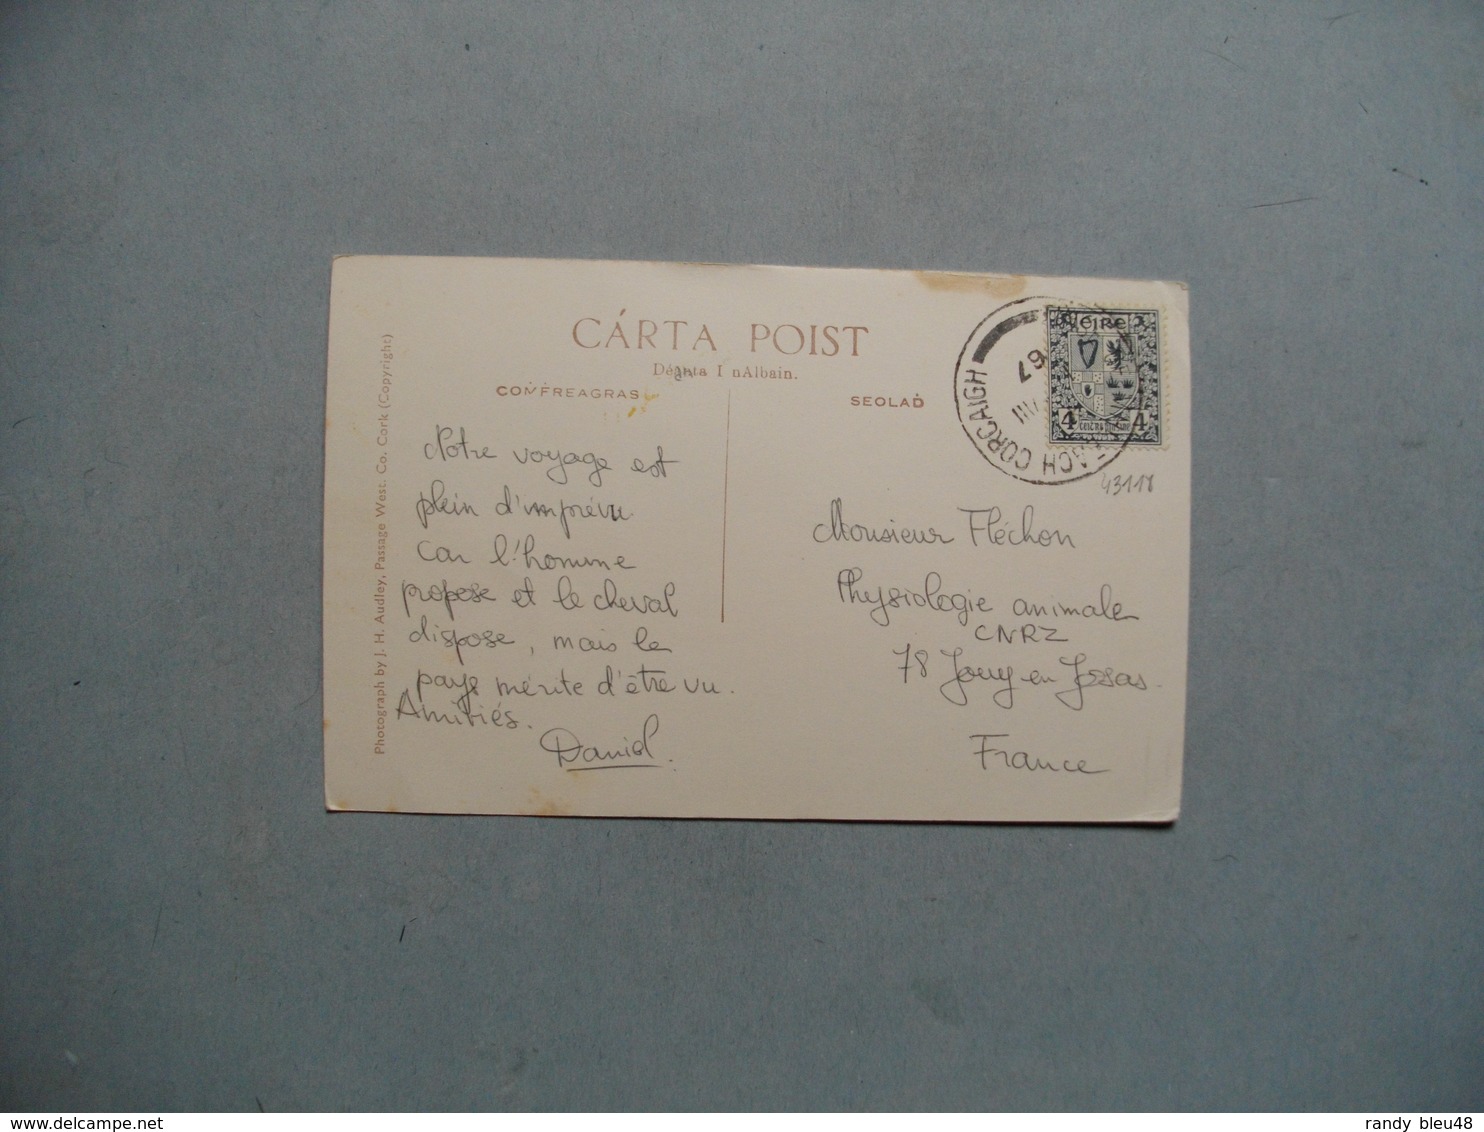 CÁRTA POIST
Déanta I nAlbain.
COṀFREAGRAS
SEOLAḊ
Photograph by J. H. Audley, Passage West. Co. Cork (Copyright)
Notre voyage est
plein d'imprévu
car l'homme
propose et le cheval
dispose, mais le
pays mérite d'être vu.
Amitiés.
Daniel.
éire
4 4
CORCAIGH
67
43118
Monsieur Fléchon
Physiologie animale
CNRZ
78 Jouy en Josas
France
randy bleu48